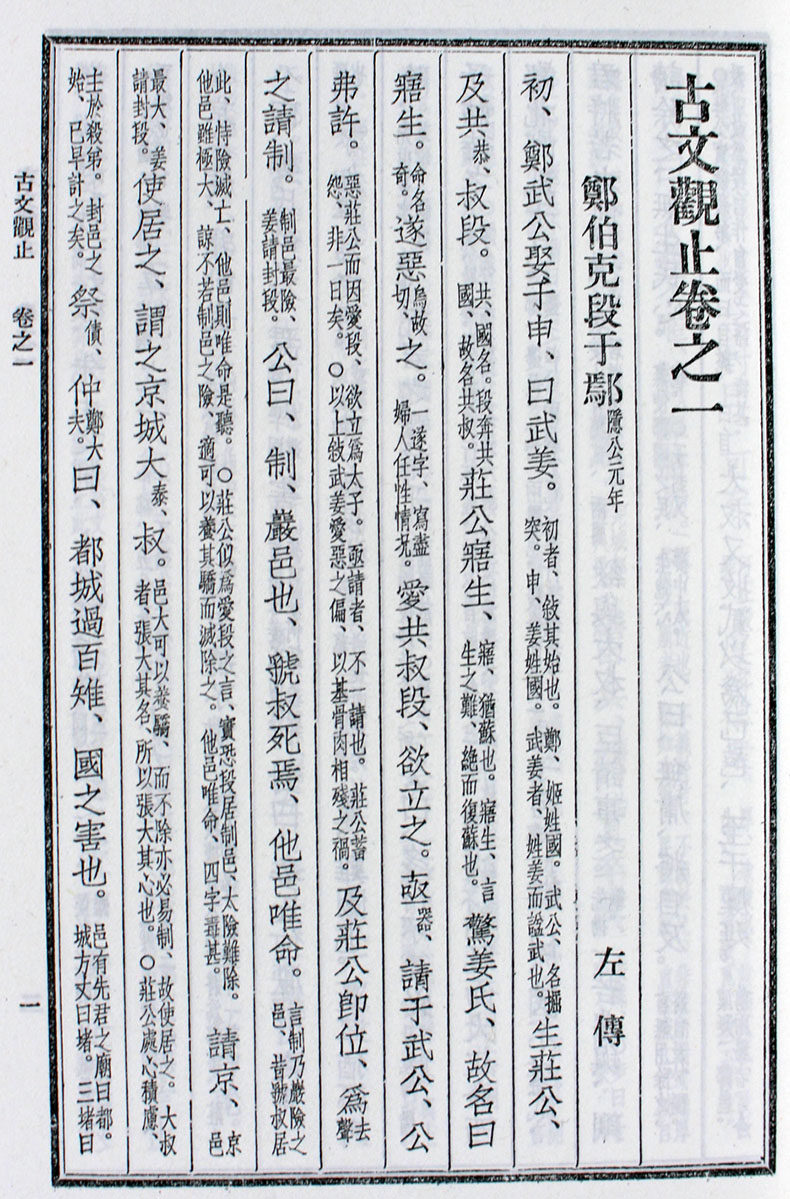 古文觀止卷之一
鄭伯克段于鄢 隱公元年 左傳
初、鄭武公娶于申、曰武姜。初者、敍其始也。鄭、姬姓國。武公、名掘突。申、姜姓國。武姜者、姓姜而諡武也。生莊公、
及共恭、叔段。共、國名。段奔共國、故名共叔。莊公寤生、寤、猶蘇也。寤生、言生之難、絕而復蘇也。驚姜氏、故名曰
寤生。命名奇。遂惡烏故切、之。一遂字、寫盡婦人任性情況。愛共叔段、欲立之。亟器、請于武公、公
弗許。惡莊公而因愛段、欲立爲太子。亟請者、不一請也。莊公蓄怨、非一日矣。○以上敍武姜愛惡之偏、以基骨肉相殘之禍。及莊公卽位、爲去聲
之請制。制邑最險、姜請封段。公曰、制、巖邑也、虢叔死焉、他邑唯命。言制乃巖險之邑、昔虢叔居
此、恃險滅亡、他邑則唯命是聽。○莊公似爲愛段之言、實恐段居制邑、太險難除。他邑雖極大、諒不若制邑之險、適可以養其驕而滅除之。他邑唯命、四字毒甚。請京、京邑
最大、姜請封段。使居之、謂之京城大泰、叔。邑大可以養驕、而不除亦必易制、故使居之。大叔者、張大其名、所以張大其心也。○莊公處心積慮、
主於殺弟。封邑之始、已早計之矣。祭債、仲鄭大夫。曰、都城過百雉、國之害也。邑有先君之廟曰都。城方丈曰堵。三堵曰
古文觀止 卷之一 一